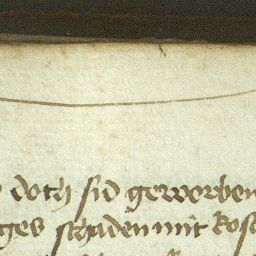 doch sid geworben
ges schaden mit kos